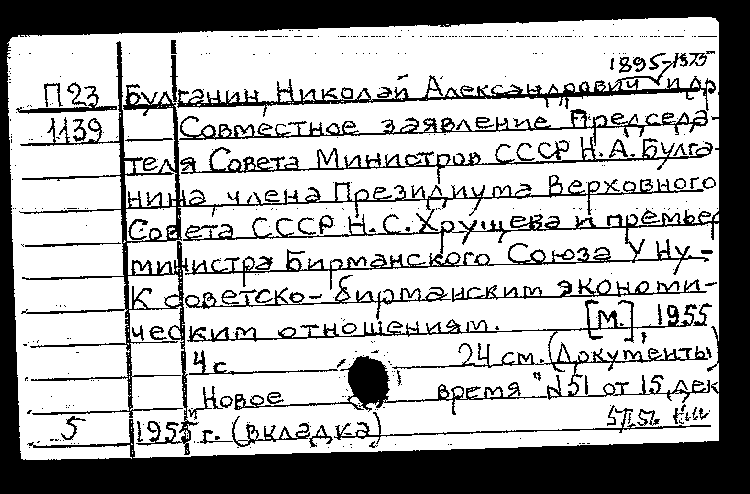 1895-1975
П23 Булганин, Николай Александрович и др.
1139 Совместное заявление Председа-
теля Совета Министров СССР Н.А. Булга-
нина, члена Президиума Верховного
Совета СССР Н.С. Хрущева и премьер
министра Бирманского Союза У Ну. -
К советско-бирманским экономи-
ческим отношениям. [М.], 1955
4 с. 24 см. (Документы)
"Новое время" №51 от 15, дек
5 1955 г. (вкладка)